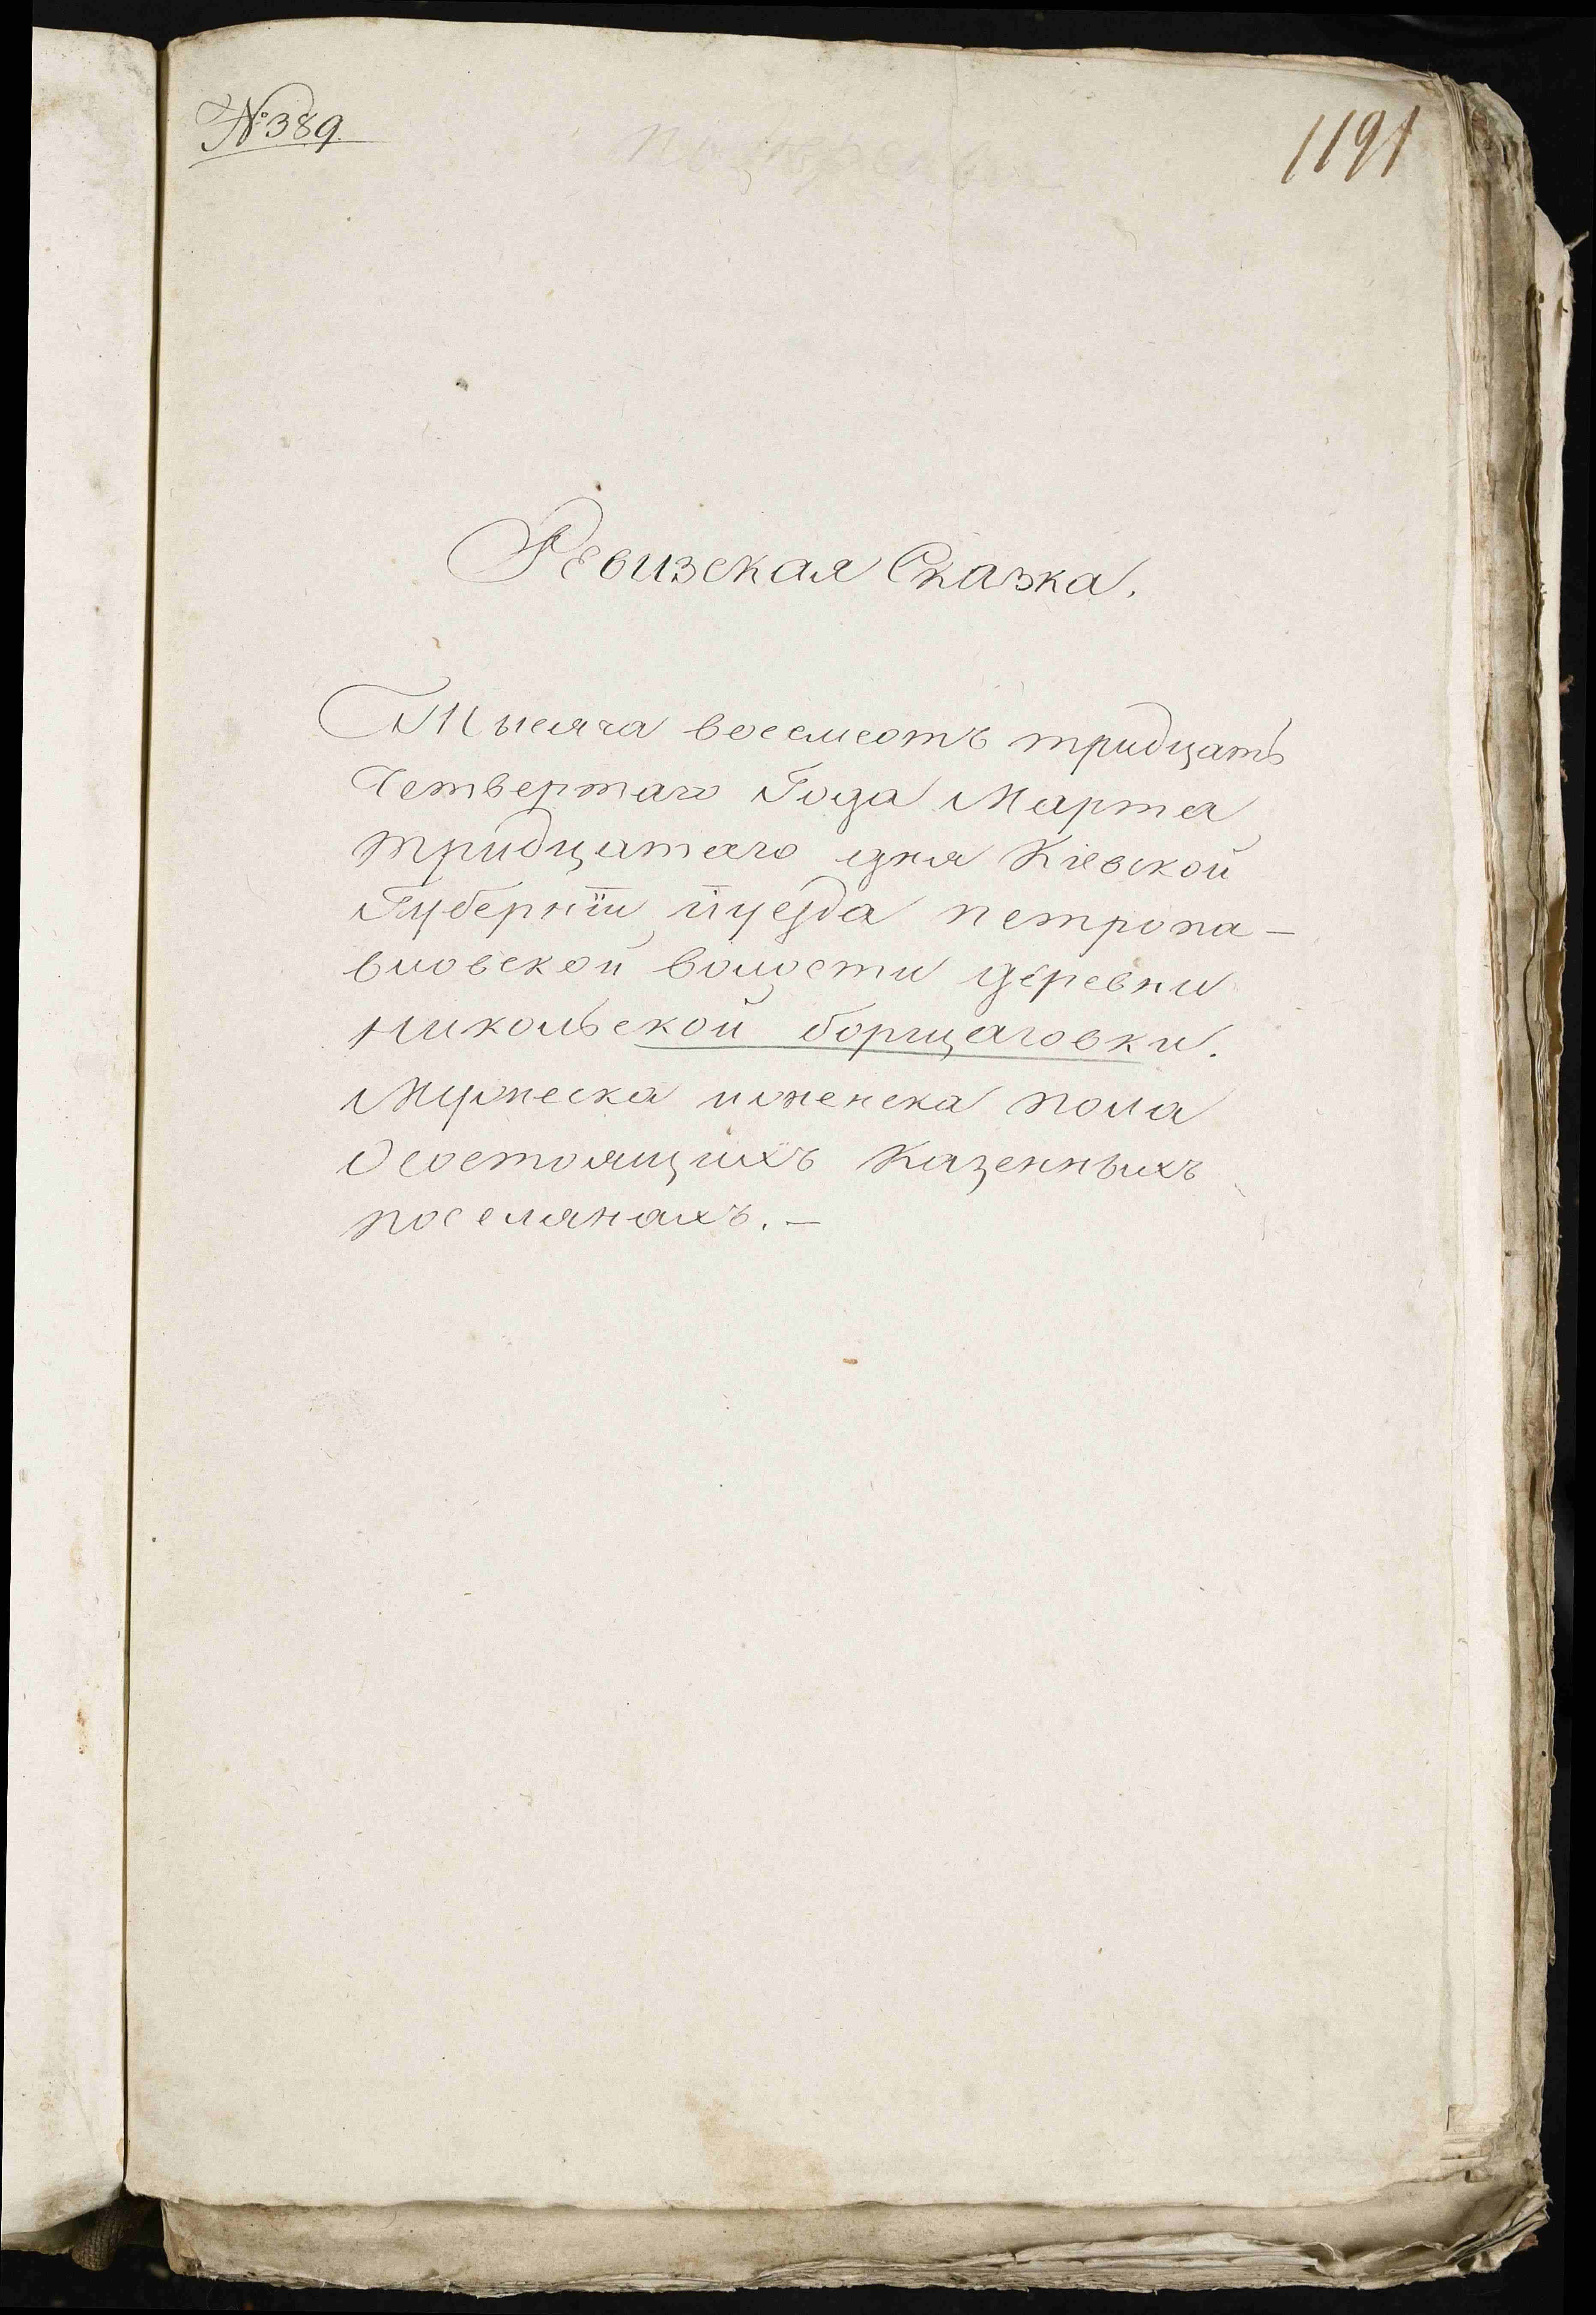 №389.
1191
Ревизская Сказка.
Тысяча восемсотъ тридцать
Четвертаго Года Марта
тридцатаго дня Кіевской
Губерніи иуезда петропа-
вловской волости деревни
никольской борщаговки.
Мужеска иженска пола
Осостоящихъ Казенныхъ
поселянахъ.-